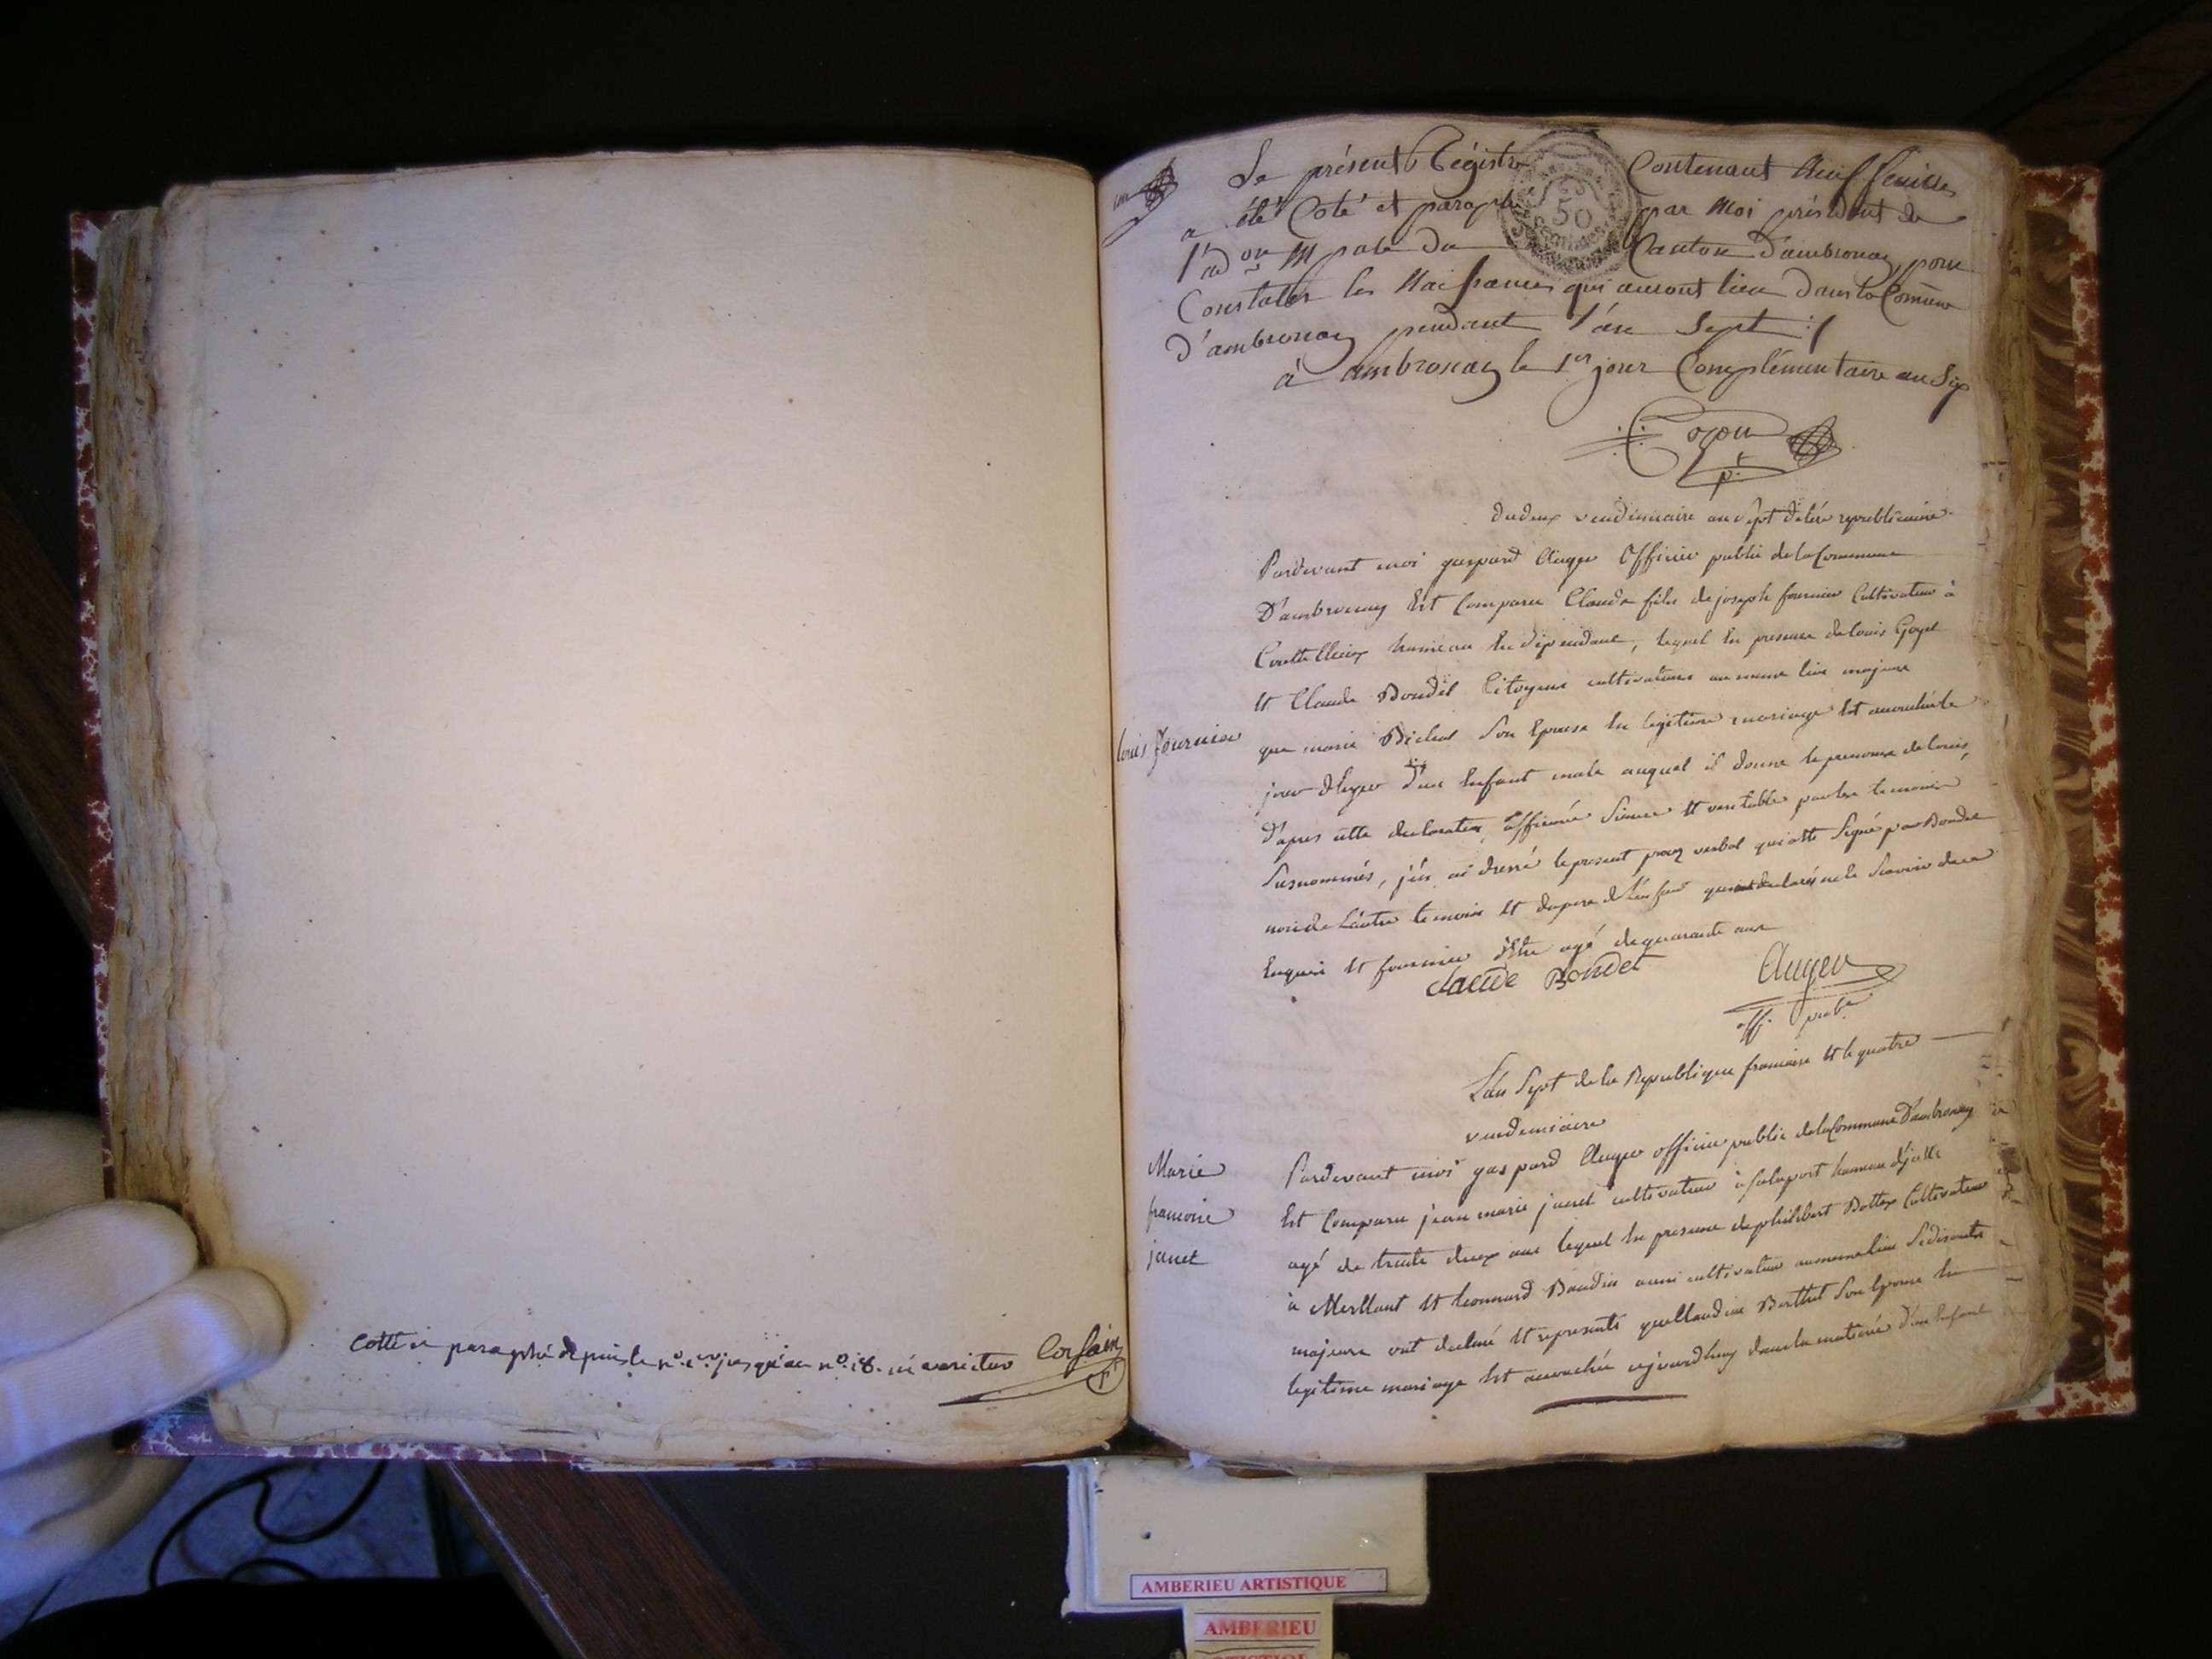 cotté et paraphé depuis le n.º 1.er jusqu'au n.º 18. ne varietur
un
Le présent Régistre Contenant Neuf feuilles
a été Coté et paraphé par Moi président de
l'ad.on M.pale du Canton d'ambronay, pour
Constater les Naissances qui auront lieu dans la Commune
d'ambronay pendant l'an Sept :/
à ambronay le 1er jour Complémentaire an Six
50
Centimes
du deux vendémiaire an sept de l'ère republicaine
Pardevant moi gaspard Auger Officier public de la Commune
D'ambronay Est Comparu Claude fils de joseph fournier Cultivateur à
hameau En dépendant, lequel En presence de louis Goyet
Et Claude Bondet Citoyens cultivateurs au meme lieu majeurs
que marie Bichat Son Epouse En legitime mariage Est accouchée le
jour d'hyer d'un Enfant male auquel il donne le prenom de louis,
louis fournier
D'apres cette declaration affirmée Sincere Et veritable par les temoins
Susnommés, j'en ai dressé le present procez verbal qui a été Signé par Bondet
non de L'autre temoin Et du pere de l'enfant qui ont declaré ne le Scavoir de ce
Enquis Et fournier d'Etre agé de quarante ans
claude Bondet
Auger
off. pub.
L'an Sept de la Republique francaise Et le quatre
vendemiaire
Marie
francoise
janet
Pardevant moi gaspard Auger officier public de la Commune D'ambronay
Est Comparu jean marie janet cultivateur à Salaport hameau d'jcelle
agé de trente deux ans lequel En presence de philibert Bottex Cultivateur
à Merlant Et leonnard Baudin aussi cultivateur au meme lieu Se disants
majeurs ont declaré Et representé que Claudine Berthet Son Epouse En
legitime mariage Est accouchée aujourdhuy dans la matinée d'un Enfant
AMBERIEU ARTISTIQUE
AMBERIEU
ARTISTIQUE